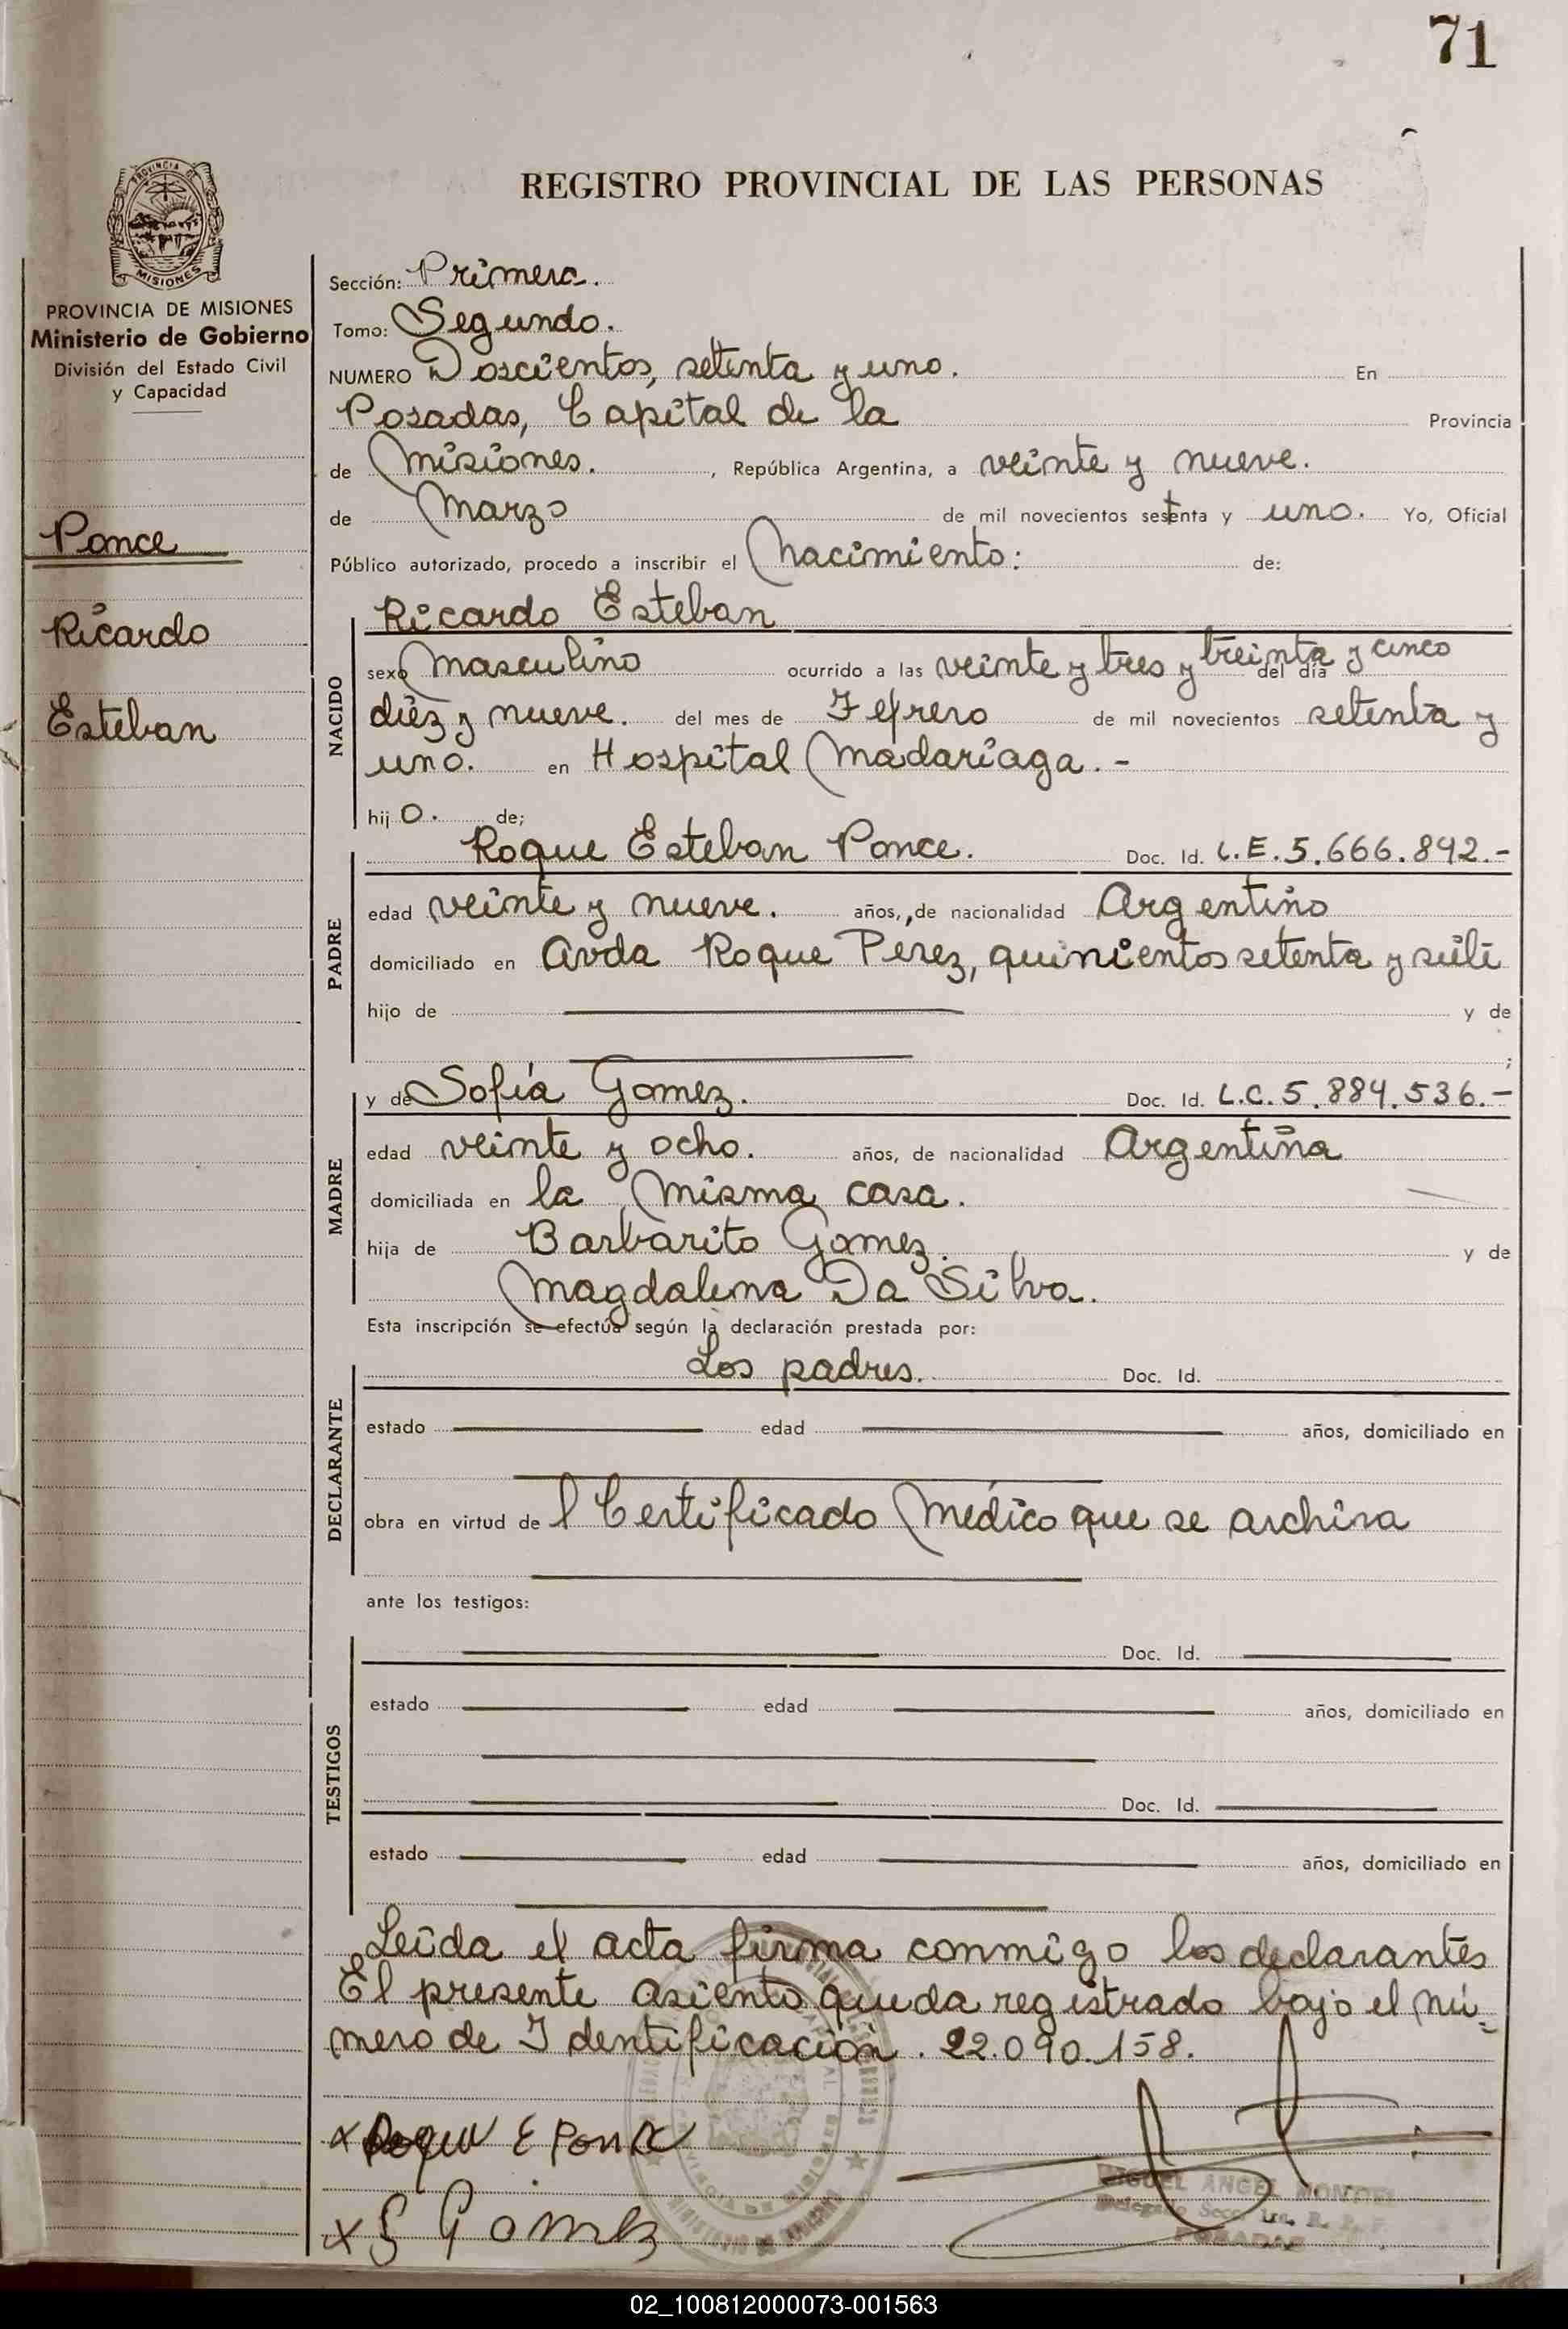 71
PROVINCIA DE
MISIONES
PROVINCIA DE MISIONES
Ministerio de Gobierno
División del Estado Civil
y Capacidad
Ponce
Ricardo
Esteban
REGISTRO PROVINCIAL DE LAS PERSONAS
Sección: Primera.
Tomo: Segundo.
NUMERO Doscientos, setenta y uno. En
Posadas, Capital de la Provincia
de Misiones. , República Argentina, a veinte y nueve.
de Marzo de mil novecientos sesenta y uno. Yo, Oficial
Público autorizado, procedo a inscribir el Nacimiento: de:
NACIDO
Ricardo Esteban
sexo Masculino ocurrido a las veinte y tres y treinta y cinco del día
diéz y nueve. del mes de Febrero de mil novecientos setenta y
uno. en Hospital Madariaga. -
hij o. de;
PADRE
Roque Esteban Ponce. Doc. Id. L.E. 5.666.892.-
edad veinte y nueve. años, de nacionalidad Argentino
domiciliado en Avda Roque Perez, quinientos setenta y
hijo de y de
;
MADRE
y de Sofía Gomez. Doc. Id. L.C. 5.884.536.-
edad veinte y ocho. años, de nacionalidad Argentina
domiciliada en la misma casa.
hija de Barbarito Gomez. y de
Magdalena Da Silva.
Esta inscripción se efectúa según la declaración prestada por:
DECLARANTE
Los padres. Doc. Id.
estado edad años, domiciliado en
obra en virtud de l Certificado Médico que se archiva
ante los testigos:
TESTIGOS
Doc. Id.
estado edad años, domiciliado en
Doc. Id.
estado edad años, domiciliado en
Leída el acta firma conmigo los declarantes
El presente asiento queda registrado bajo el nú-
mero de Identificación. 22.090.158.
x Roque E Ponce
x S Gómez
MIGUEL ANGEL
POSADAS
02_100812000073-001563